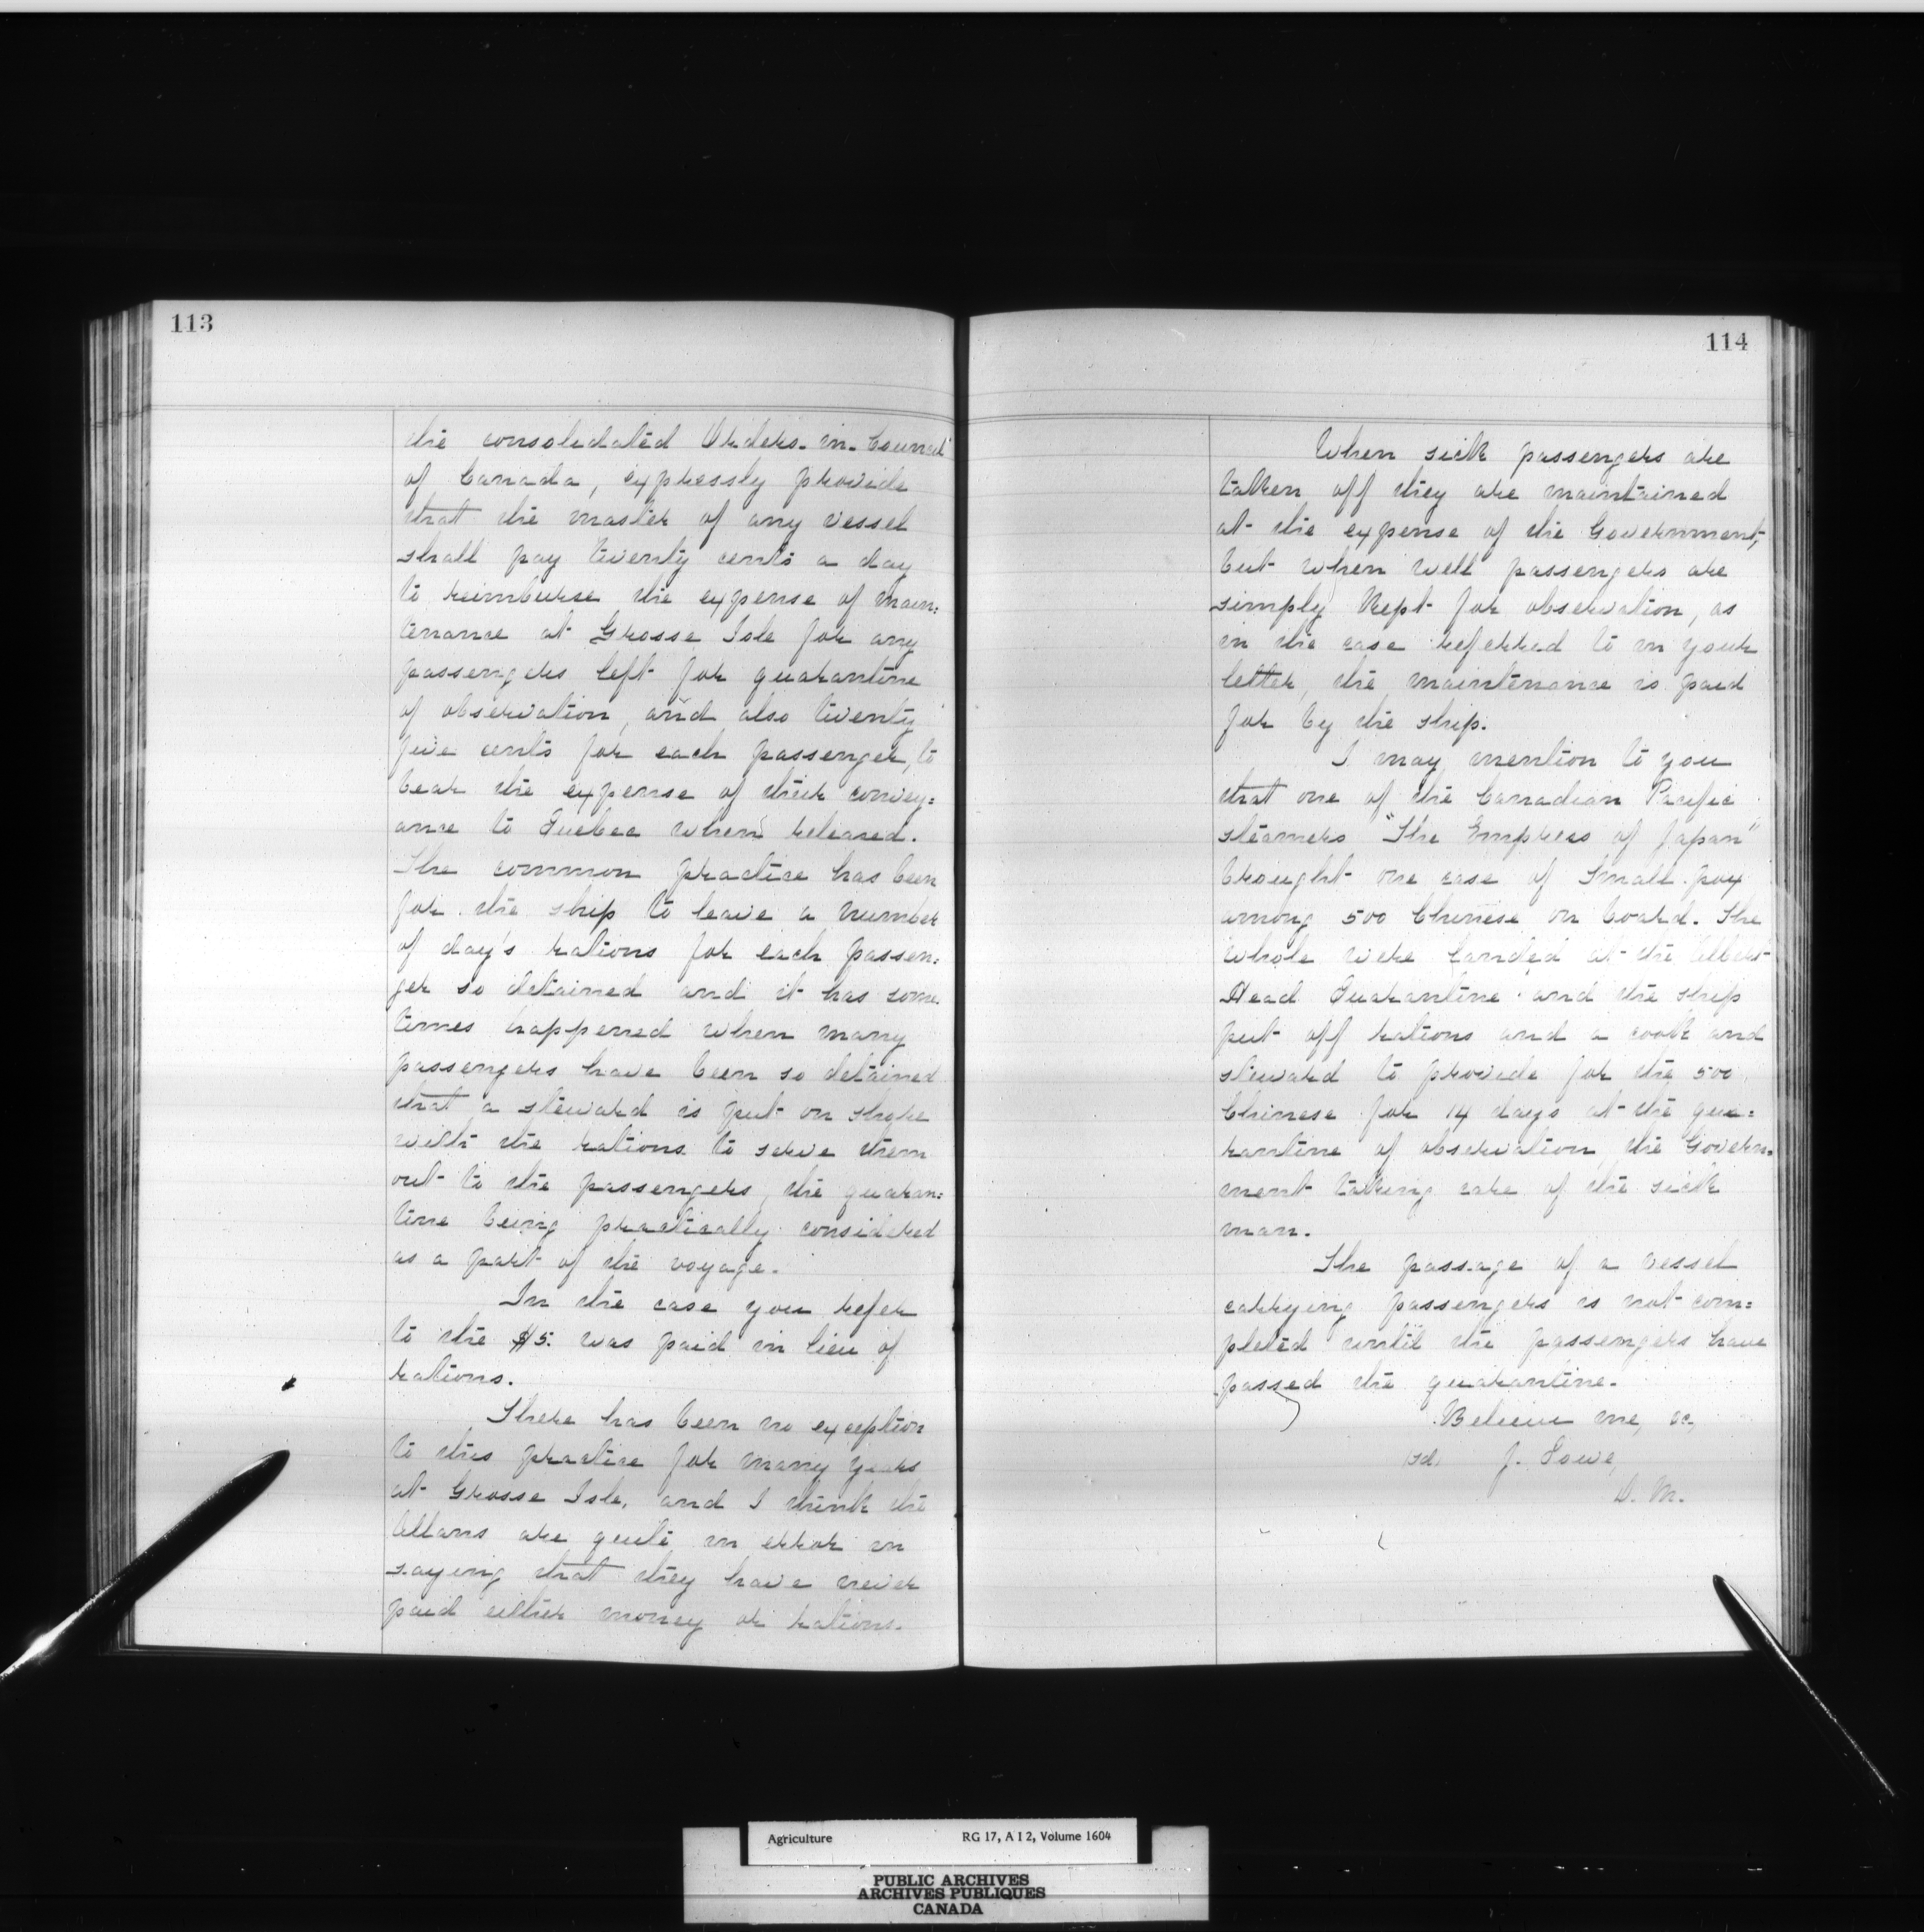 113
the consolidated Orders-in-Council
of Canada, expressly provide
that the master of any vessel
shall pay twenty cents a day
to reimburse the expense of main=
tenance at Grosse Isle for any
passengers left for quarantine
of observation, and also twenty
five cents for each passenger, to
bear the expense of their convey=
ance to Quebec when released.
The common practice has been
for the ship to leave a number
of day's rations for each passen=
ger so detained and it has some
times happened when many
passengers have been so detained
that a steward is put on shore
with the rations to serve them
out to the passengers, the quaran=
tine being practically considered
as a part of the voyage.
In the case you refer
to the $5. was paid in lieu of
rations.
There has been no exception
to this practice for many years
at Grosse Isle, and I think the
Allans are quite in error in
saying that they have never
paid either money or rations.
114
When sick passengers are
taken off they are maintained
at the expense of the Government,
but when well passengers are
simply kept for observation, as
in the case referred to in your
letter, the maintenance is paid
for by the ship.
I may mention to you
that one of the Canadian Pacific
steamers "The Empress of Japan"
brought one case of Small pox
among 500 Chinese on board. The
whole were landed at the Albert
Head Quarantine and the ship
put off rations and a cook and
steward to provide for the 500
Chinese for 14 days at the qua=
rantine of observation, the Govern=
ment taking care of the sick
man.
The passage of a vessel
carrying passengers is not com=
pleted until the passengers have
passed the quarantine.
Believe me, &c,
(sd) J. Lowe,
D. M.
Agriculture RG 17, A I 2, Volume 1604
PUBLIC ARCHIVES
ARCHIVES PUBLIQUES
CANADA